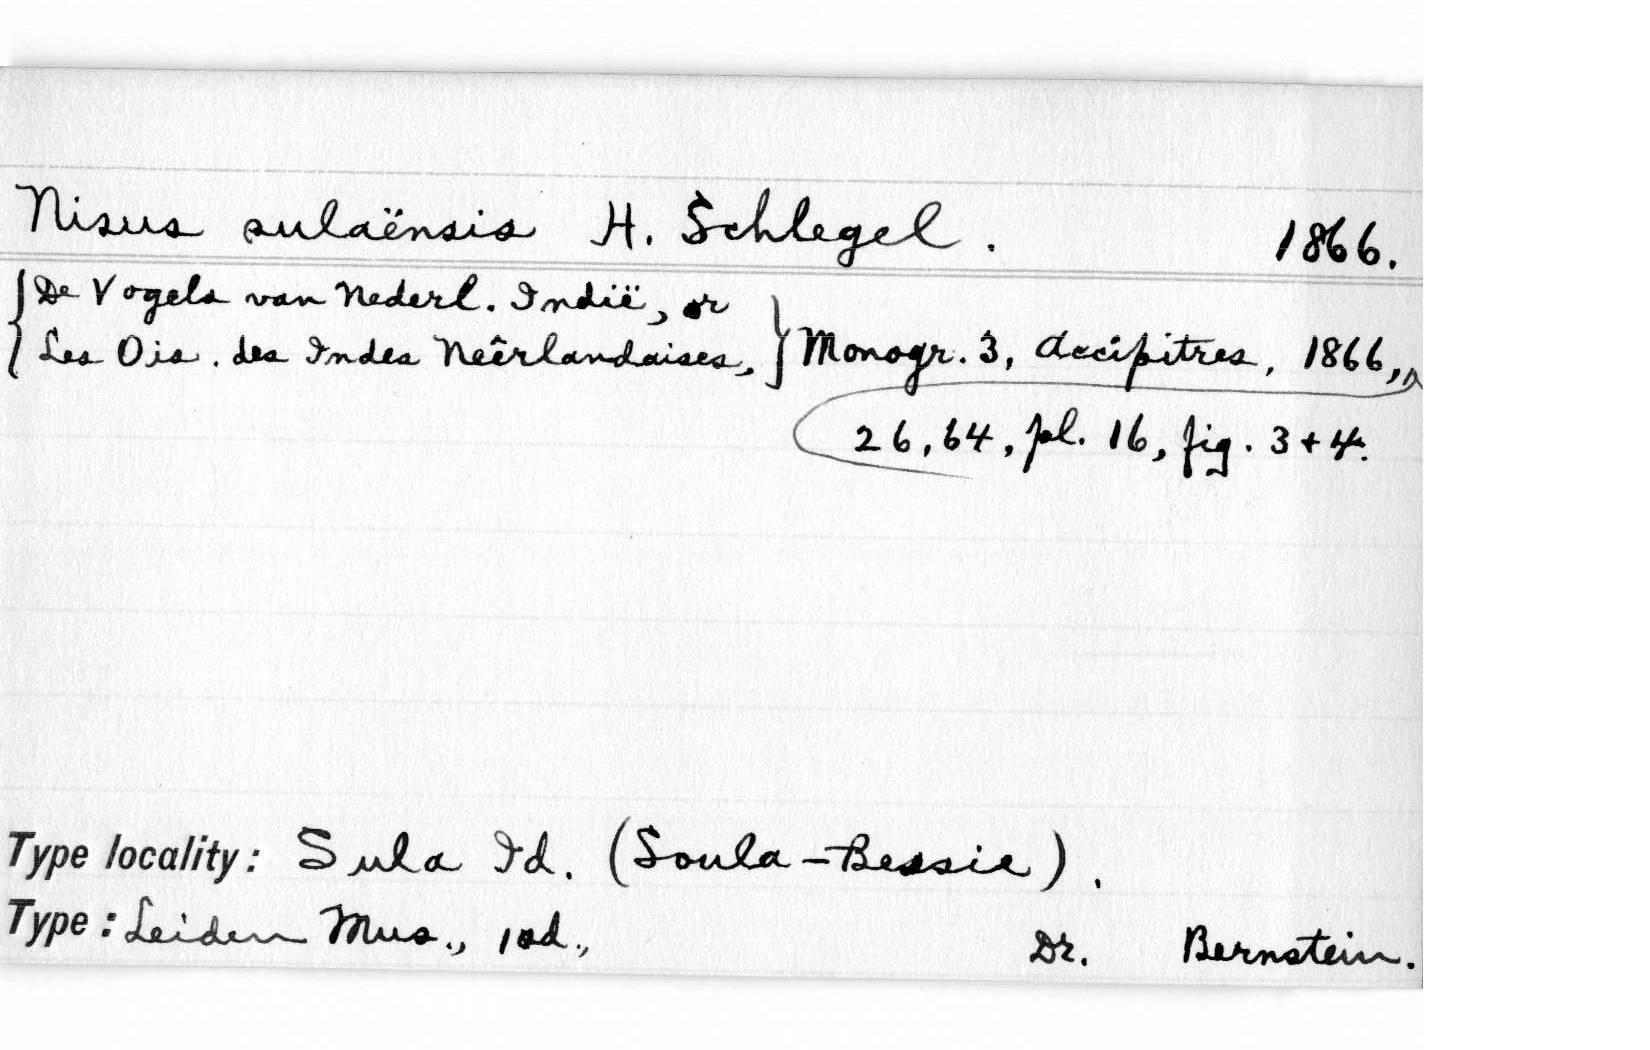 Nisus sulaënsis H. Schlegel. 1866.
De Vogels van Nederl. Indië, or
Les Ois. des Indes Neêrlandaises, Monogr. 3, Accipitres, 1866,
26, 64, pl. 16, fig. 3 + 4.
Type locality: Sula Id. (Soula-Bessie).
Type: Leiden Mus., 1 ad., Dr. Bernstein.